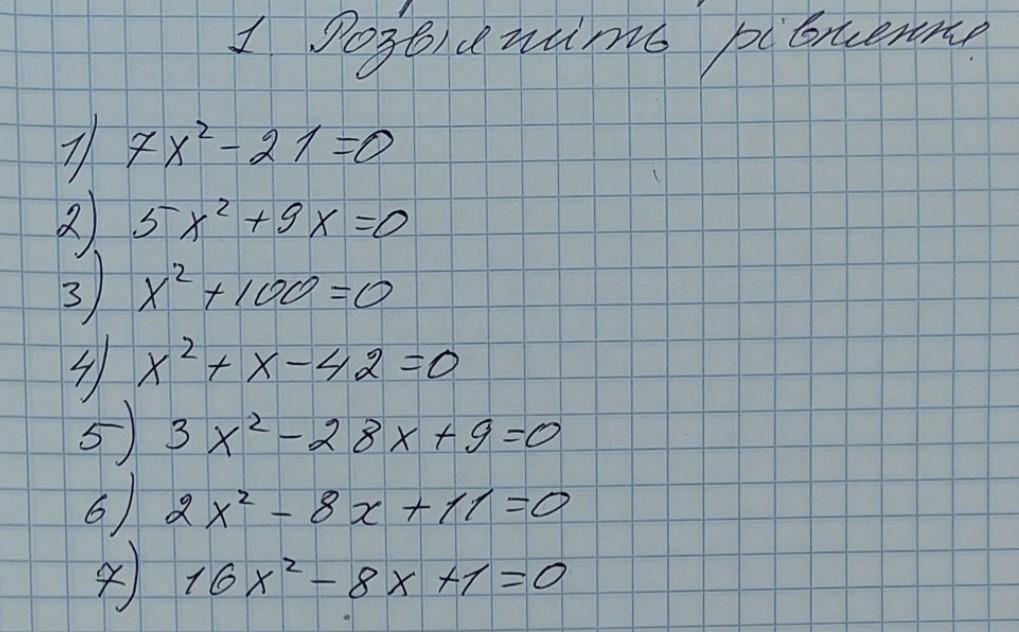 1. Розв'яжіть рівняння
1) 7x² - 21 = 0
2) 5x² + 9x = 0
3) x² + 100 = 0
4) x² + x - 42 = 0
5) 3x² - 28x + 9 = 0
6) 2x² - 8x + 11 = 0
7) 16x² - 8x + 1 = 0